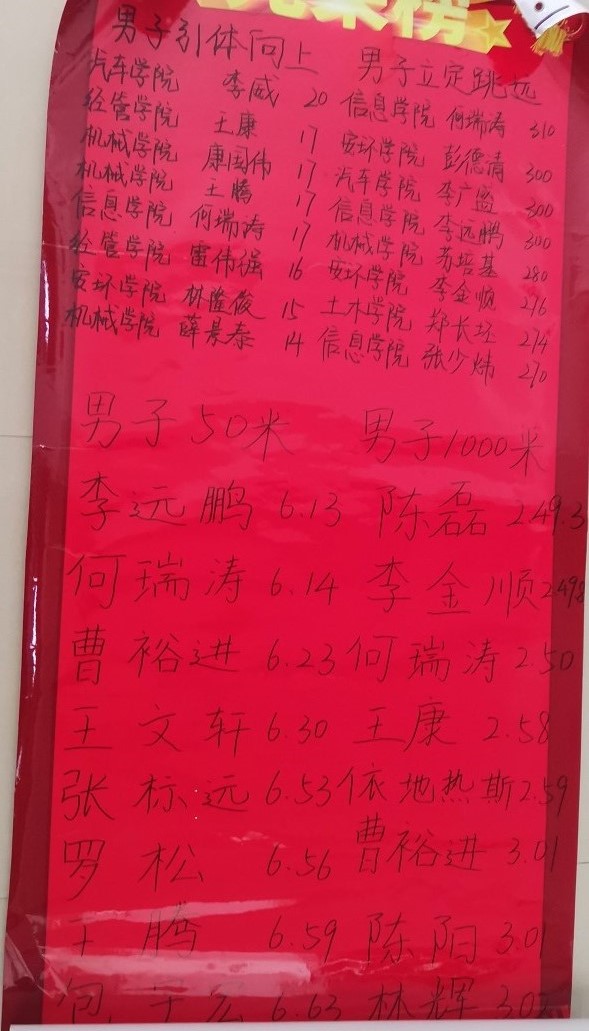 光荣榜
男子引体向上 男子立定跳远
汽车学院 李威 20 信息学院 何瑞涛 310
经管学院 王康 17 安环学院 彭德清 300
机械学院 康国伟 17 汽车学院 李广盛 300
机械学院 王腾 17 信息学院 李远鹏 300
信息学院 何瑞涛 17 机械学院 苏培基 280
经管学院 雷伟强 16 安环学院 李金顺 276
安环学院 林隆俊 15 土木学院 郑长 274
机械学院 薛景泰 14 信息学院 张少炜 270
男子50米 男子1000米
李远鹏 6.13 陈磊 2.49.3
何瑞涛 6.14 李金顺 2.498
曹裕进 6.23 何瑞涛 2.50
王文轩 6.30 王康 2.58
张标远 6.53 依地热斯 2.59
罗松 6.56 曹裕进 3.01
王腾 6.59 陈阳 3.01
包 6.63 林辉